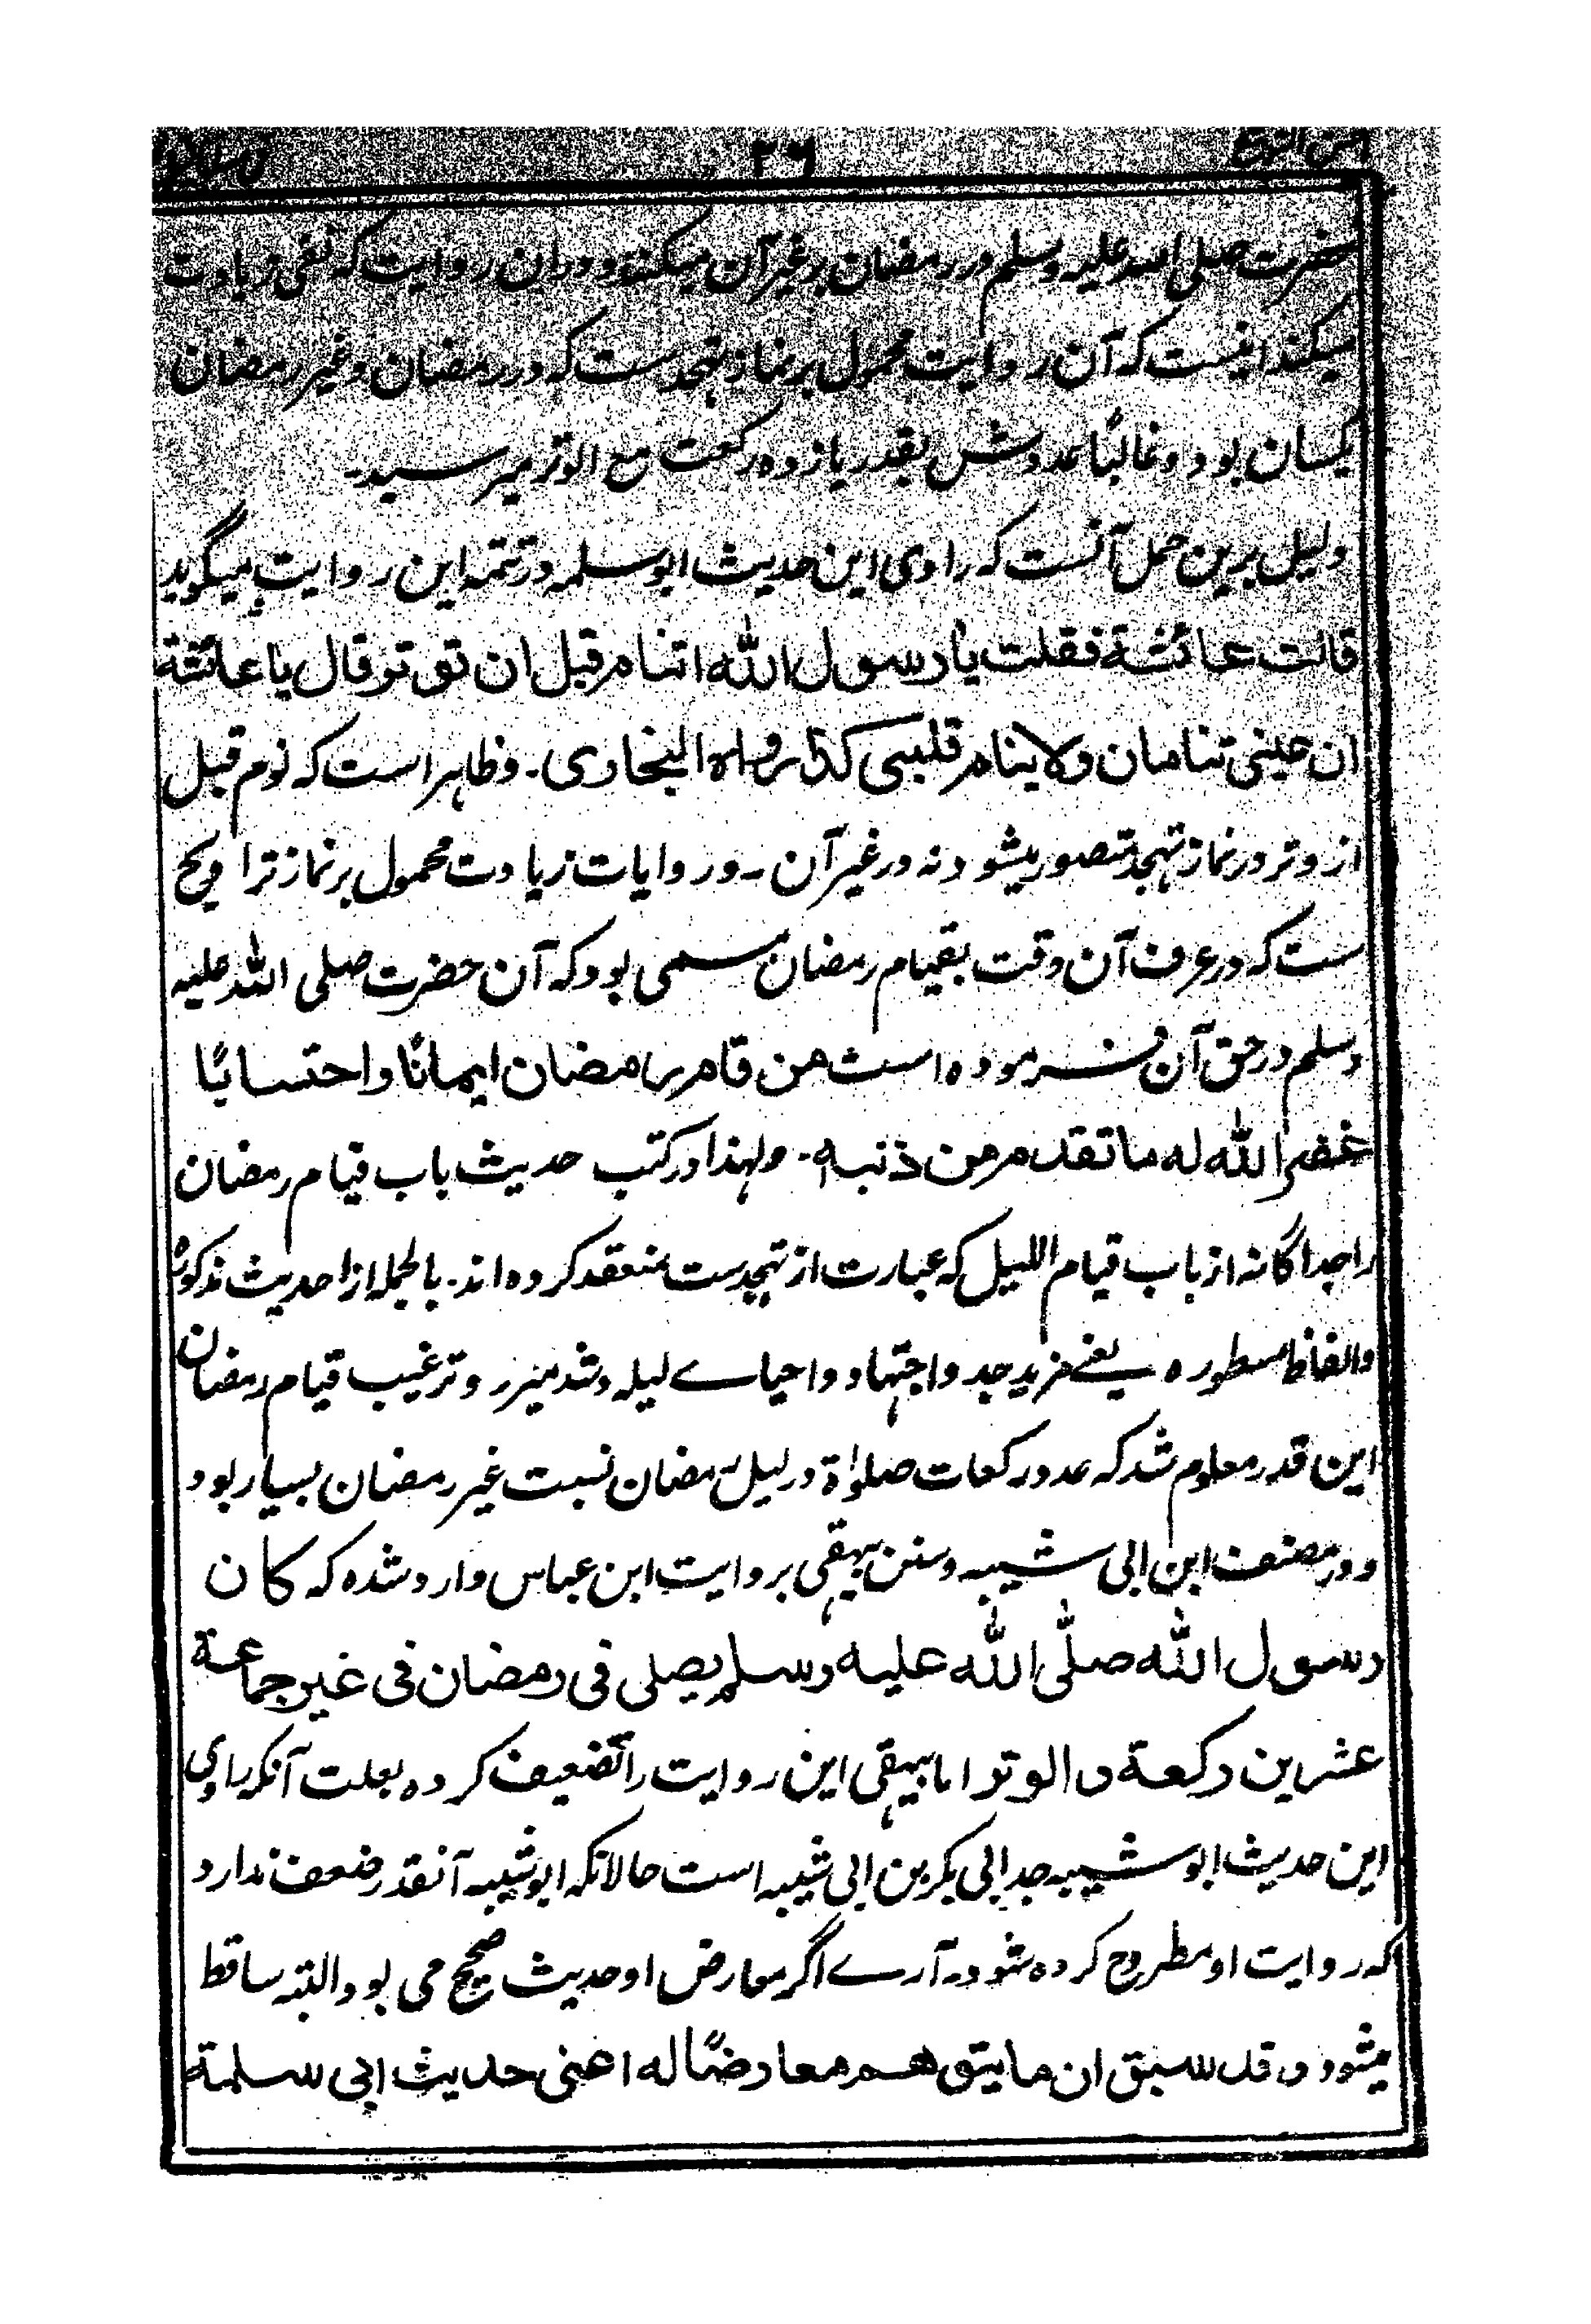 ۲۶
حضرت صلی اللہ علیہ وسلم در رمضان بر غیر آن میکند و دران روایت کہ نفی زیادت
میکند اینست کہ آن روایت محمول بر نماز تہجدست کہ در رمضان و غیر رمضان
یکسان بود و غالبًا عددش بقدر یازدہ رکعت مع الوتر میرسید۔
دلیل برین حمل آنست کہ راوی این حدیث ابو سلمہ در تتمہ این روایت میگوید
قالت عائشة فقلت یا رسول الله اتنام قبل ان توتر قال یا عائشة
ان عینی تنامان ولا ینام قلبی کذا رواه البخاری۔ و ظاہر است کہ نوم قبل
از وتر در نماز تہجد متصور میشود نہ در غیر آن ۔ و روایات زیادت محمول بر نماز تراویح
ست کہ در عرف آن وقت بقیام رمضان مسمی بود کہ آن حضرت صلی اللہ علیہ
وسلم در حق آن فرمودہ است من قام رمضان ایمانًا واحتسابًا
غفر الله له ما تقدم من ذنبه۔ ولہذا در کتب حدیث باب قیام رمضان
را جداگانہ از باب قیام اللیل کہ عبارت از تہجدست منعقد کردہ اند۔ بالجملہ از احدیث مذکورہ
و الفاظ مسطورہ یعنے مزید جد و اجتہاد و احیاے لیلہ و شد میزر و ترغیب قیام رمضان
این قدر معلوم شد کہ عدد رکعات صلوٰة در لیل رمضان نسبت غیر رمضان بسیار بود
و در مصنف ابن ابی شیبہ و سنن بیہقی بروایت ابن عباس وارد شدہ کہ کان
رسول الله صلّی الله علیه وسلم یصلی فی رمضان فی غیر جماعة
عشرین رکعة والوتر اما بیہقی این روایت را تضعیف کردہ بعلت آنکہ راوی
این حدیث ابو شیبہ جد ابی بکر بن ابی شیبہ است حالانکہ ابو شیبہ آنقدر ضعف ندارد
کہ روایت او مطروح کردہ شود۔ آرے اگر معارض او حدیث صحیح می بود البتہ ساقط
میشود وقد سبق ان ما یتوهم معارضًا له اعنی حدیث ابی سلمة